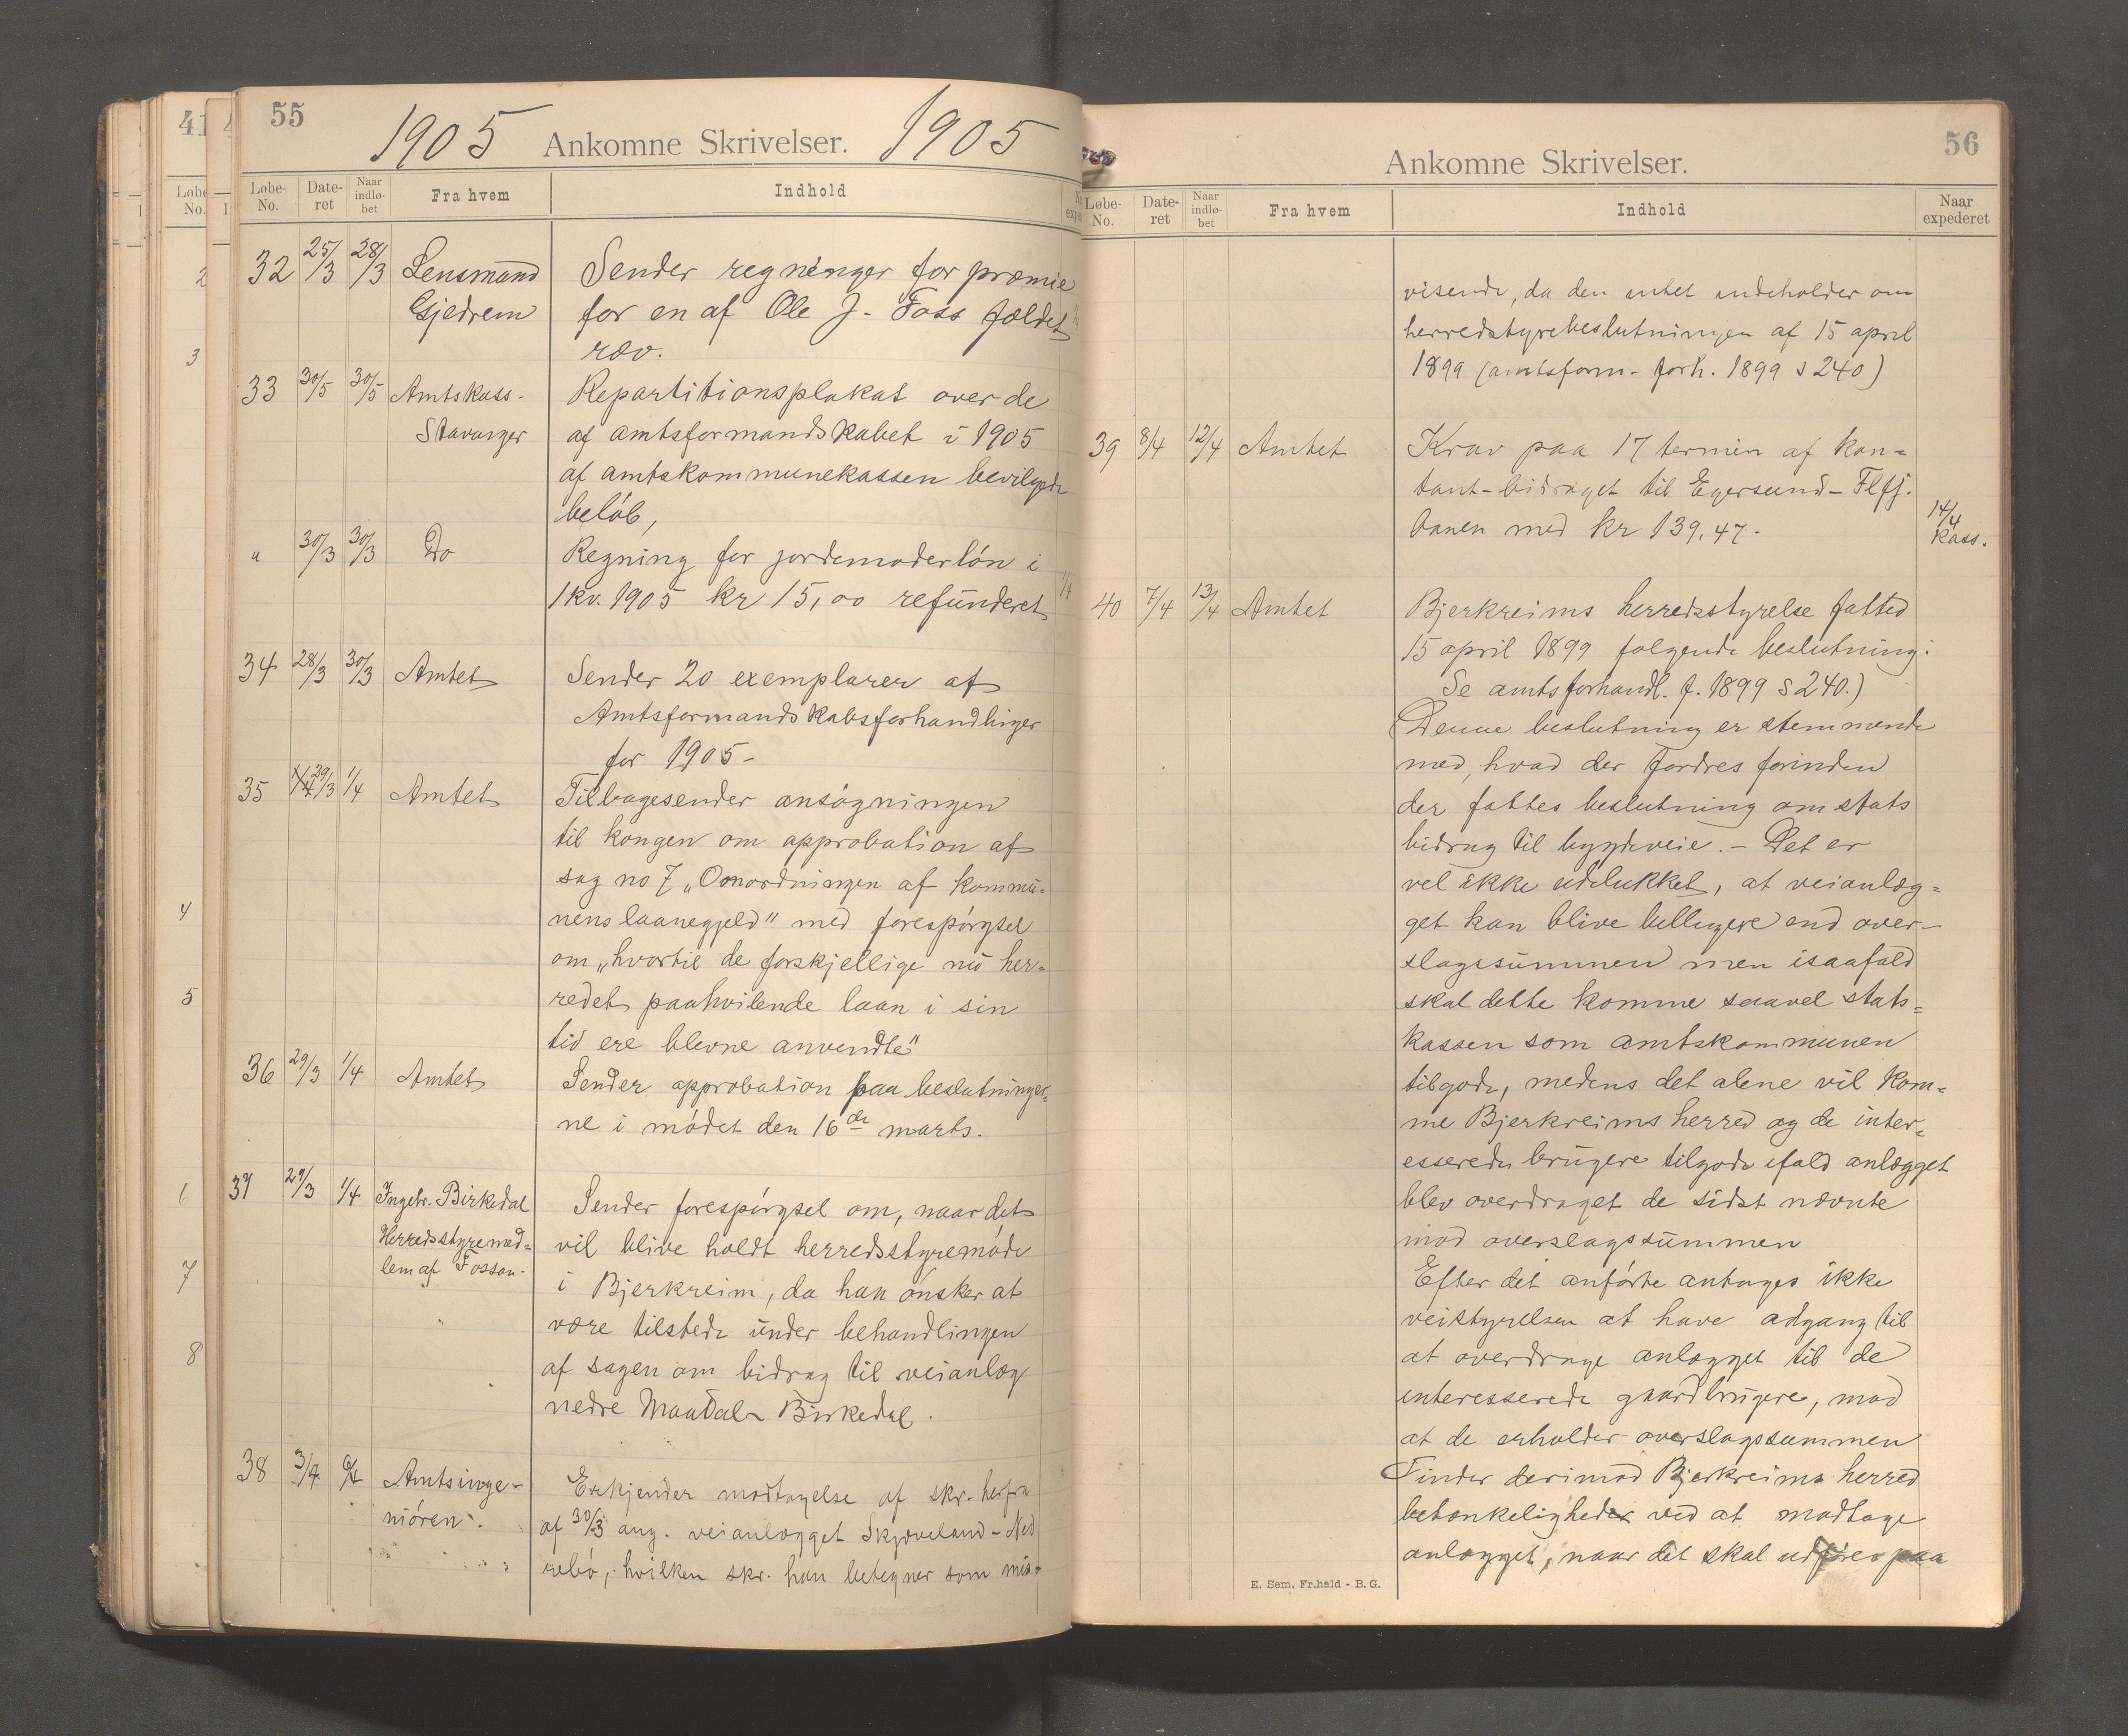 55
1905 Ankomne Skrivelser. 1905
Løbe-No. Date-ret Naar indløbet Fra hvem Indhold
32 25/3 28/3 Lensmand Sender regninger for præmie
Gjedrem for en af Ole J. Foss fældet
ræv.
33 30/5 30/5 Amtskass. Repartitionsplakat over de
Stavanger af amtsformandskabet i 1905
af amtskommunekassen bevilgede
beløb,
" 30/3 30/3 Do Regning for jordemoderløn i
1 kv. 1905 kr 15,00 refunderet
34 28/3 30/3 Amtet Sender 20 exemplarer af
Amtsformandskabsforhandlinger
for 1905 -
35 29/3 1/4 Amtet Tilbagesender ansøgningen
til kongen om approbation af
sag no 7 „Omordningen af kommu-
nens laanegjeld" med forespørgsel
om „hvortil de forskjellige nu her-
redet paahvilende laan i sin
tid ere blevne anvendte"
36 29/3 1/4 Amtet Sender approbation paa beslutninger-
ne i mødet den 16de marts.
37 29/3 1/4 Ingebr. Birkedal Sender forespørgsel om, naar det
Herredsstyremed- vil blive holdt herredsstyremøde
lem af Fossan. i Bjerkreim, da han ønsker at
være tilstede under behandlingen
af sagen om bidrag til veianlæg
nedre Maudal - Birkedal.
38 3/4 6/4 Amtsinge- Erkjender modtagelse af skr. herfra
niøren. af 30/3 ang. veianlægget Skjæveland - Ned
rebø, hvilken skr. han betegner som mis-
56
Ankomne Skrivelser.
Løbe-No. Date-ret Naar indløbet Fra hvem Indhold Naar expederet
visende, da den intet indeholder om
herredstyrebeslutningen af 15 april
1899 (amtsform. forh. 1899 s 240)
39 8/4 12/4 Amtet Krav paa 17 termin af kon-
tant-bidraget til Egersund - Flfj.
banen med kr 139.47. 14/4 Kass.
40 7/4 13/4 Amtet Bjerkreims herredsstyrelse fatted
15 april 1899 følgende beslutning:
Se amtsforhandl. f. 1899 s 240.)
Denne beslutning er stemmende
med, hvad der fordres forinden
der fattes beslutning om stats
bidrag til bygdeveie. - Det er
vel ikke udelukket, at veianlæg-
get kan blive billigere end over-
slagssummen men isaafald
skal dette komme saavel stats-
kassen som amtskommunen
tilgode, medens det alene vil kom-
me Bjerkreims herred og de inter-
esserede brugere tilgode ifald anlægget
blev overdraget de sidst nævnte
mod overslagssummen
Efter det anførte antages ikke
veistyrelsen at have adgang til
at overdrage anlægget til de
interesserede gaardbrugere, mod
at de erholder overslagssummen
Finder derimod Bjerkreims herred
betænkeligheder ved at modtage
anlægget, naar det skal udføres paa
E. Sem. Fr.hald - B. G.
41
2
3
4
5
6
7
8